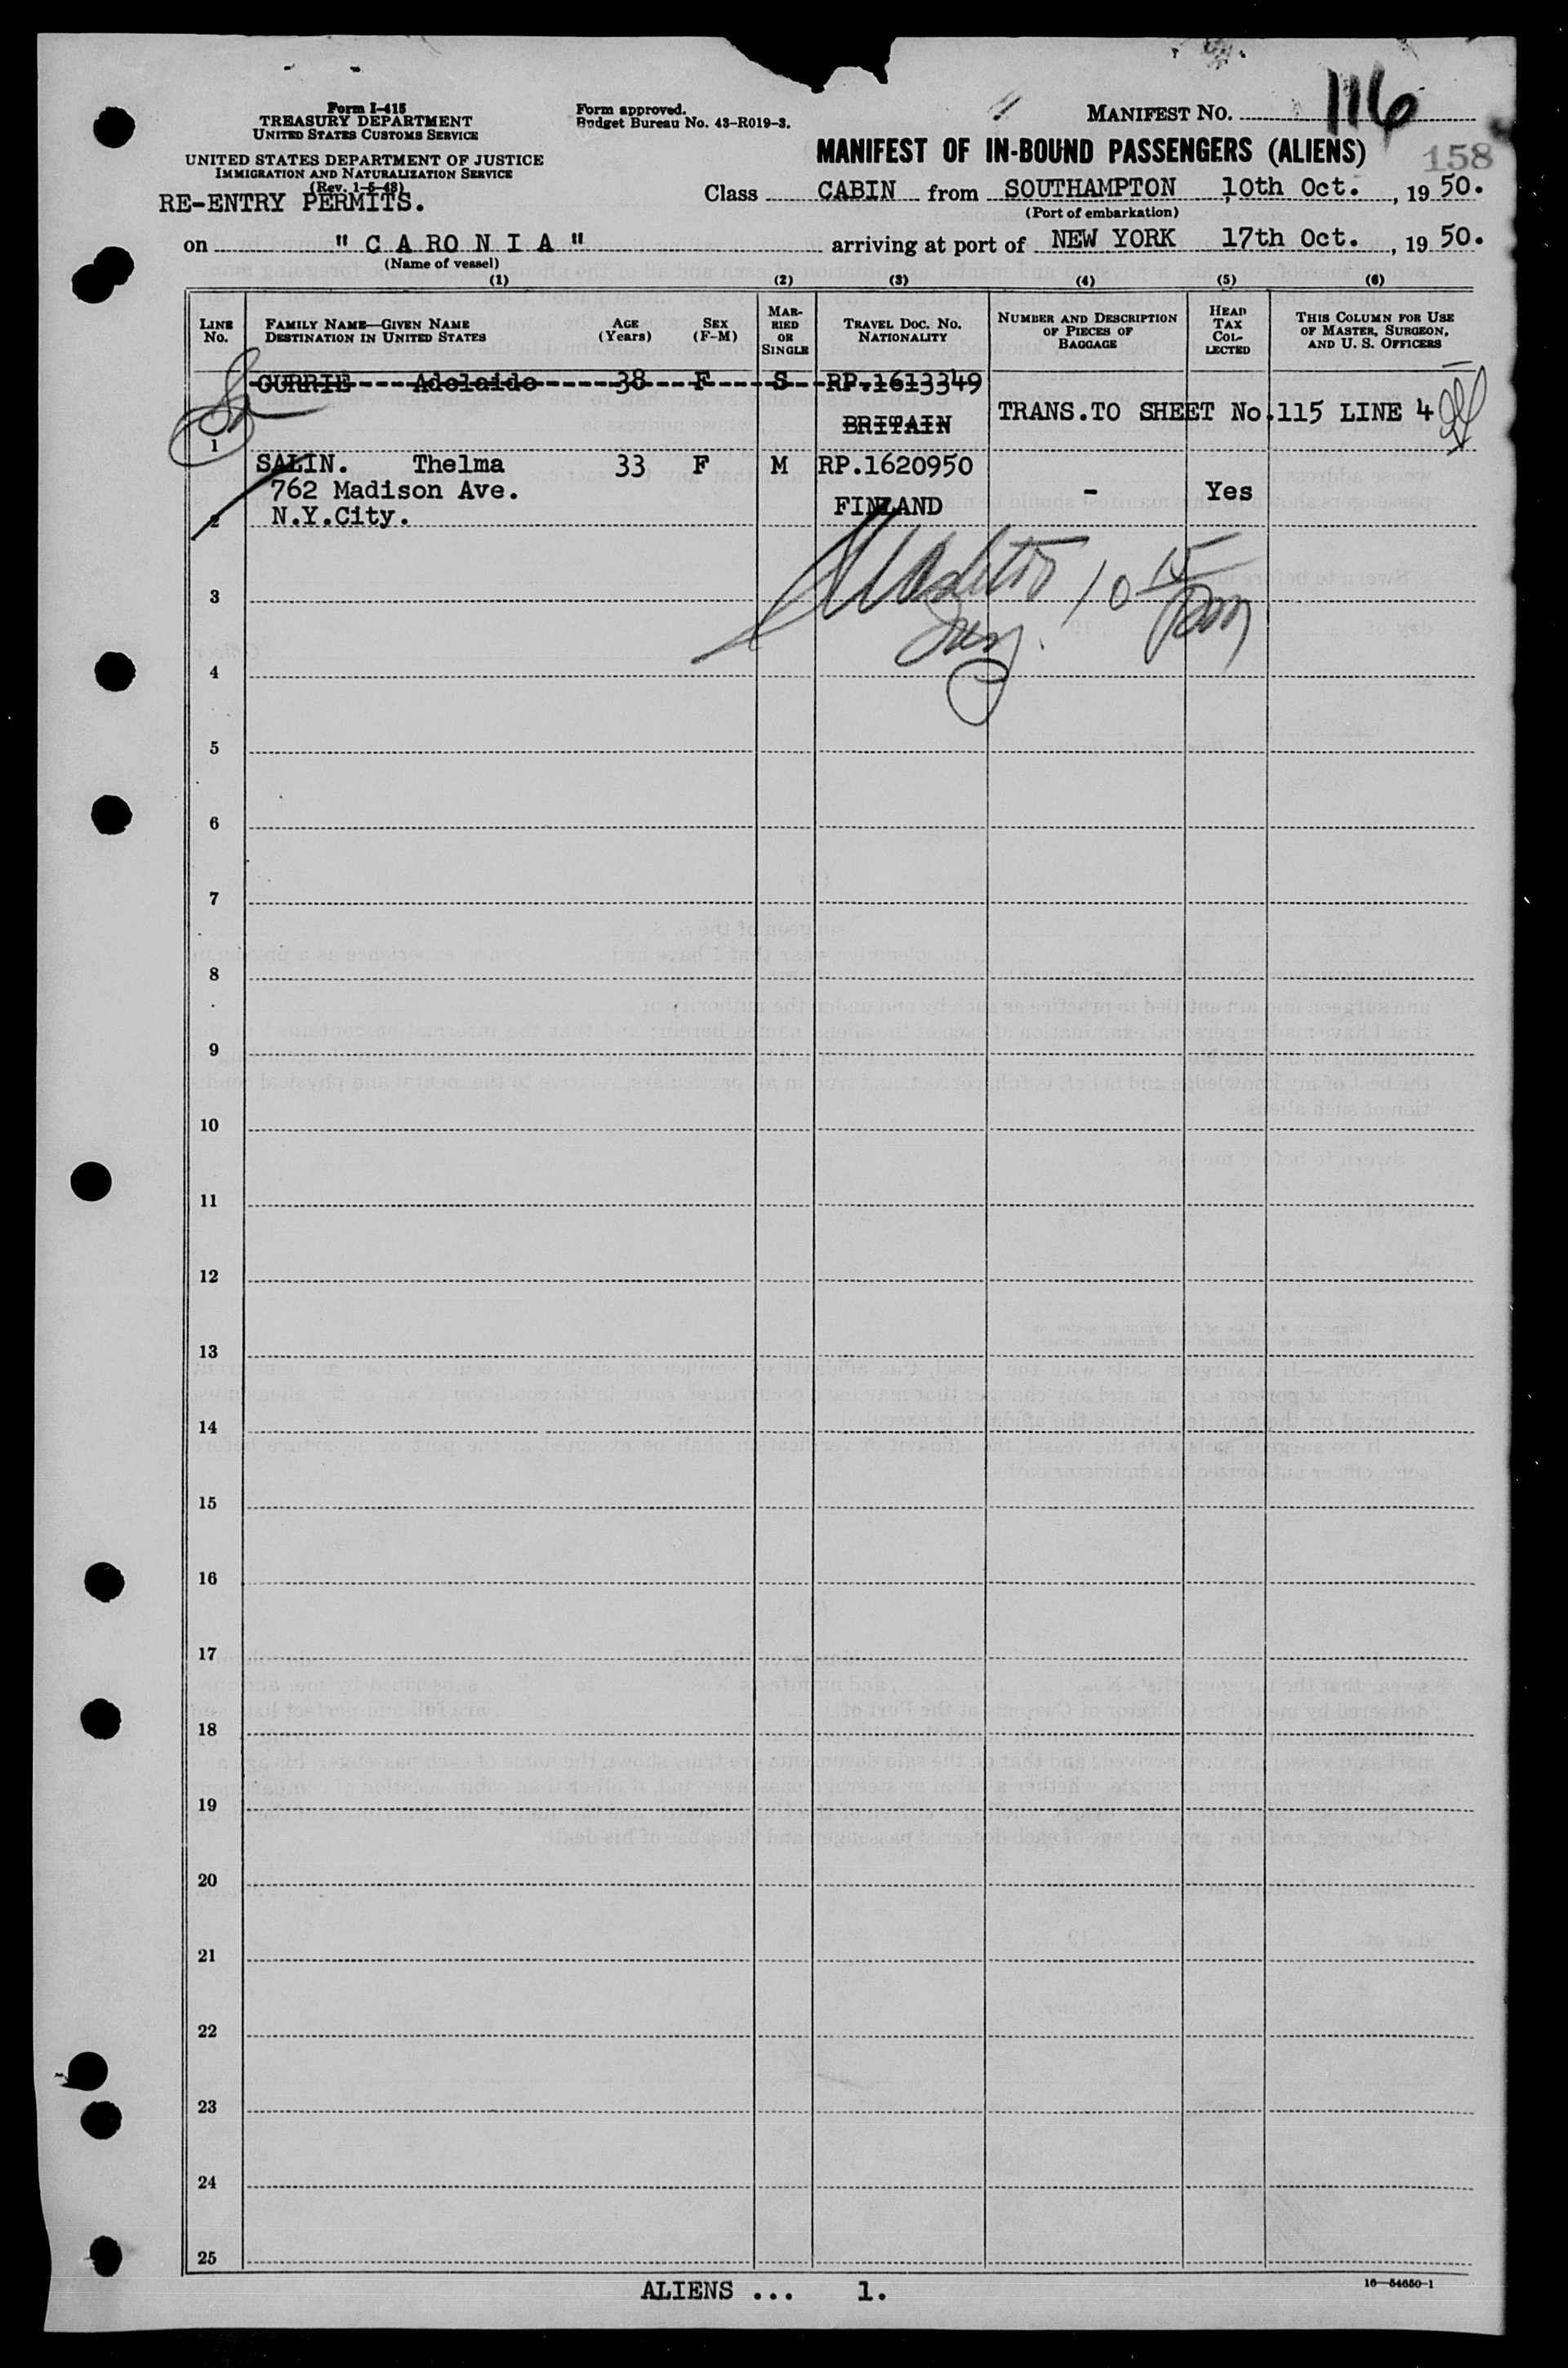 Form I-415
TREASURY DEPARTMENT
UNITED STATES CUSTOMS SERVICE
UNITED STATES DEPARTMENT OF JUSTICE
IMMIGRATION AND NATURALIZATION SERVICE
(Rev. 1-5-48)
RE-ENTRY PERMITS.
Form approved.
Budget Bureau No. 43-R019-3.
MANIFEST No. 116
MANIFEST OF IN-BOUND PASSENGERS (ALIENS) 158
Class CABIN from SOUTHAMPTON 10th Oct. , 19 50.
(Port of embarkation)
on " C A R O N I A " arriving at port of NEW YORK 17th Oct. , 19 50.
(Name of vessel)
(1) (2) (3) (4) (5) (6)
LINE No. FAMILY NAME—GIVEN NAME DESTINATION IN UNITED STATES AGE (Years) SEX (F-M) MARRIED OR SINGLE TRAVEL DOC. No. NATIONALITY NUMBER AND DESCRIPTION OF PIECES OF BAGGAGE HEAD TAX COLLECTED THIS COLUMN FOR USE OF MASTER, SURGEON, AND U. S. OFFICERS
Adelaide 38 F S RP.1613349
1 BRITAIN TRANS.TO SHEET No.115 LINE 4
SALIN. Thelma 33 F M RP.1620950
762 Madison Ave. - Yes
2 N.Y.City. FINLAND
10 15
3
4
5
6
7
8
9
10
11
12
13
14
15
16
17
18
19
20
21
22
23
24
25
ALIENS ... 1.
16—54650-1